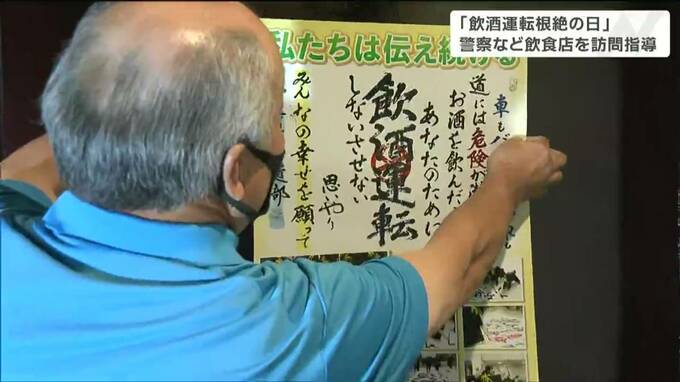 「飲酒運転根絶の日」
警察など飲食店を訪問指導
私たちは伝え続ける
車も
道には危険が
お酒を飲んだ
あなたのために
飲酒運転
しないさせない
思いやり
みんなの幸せを願って
部